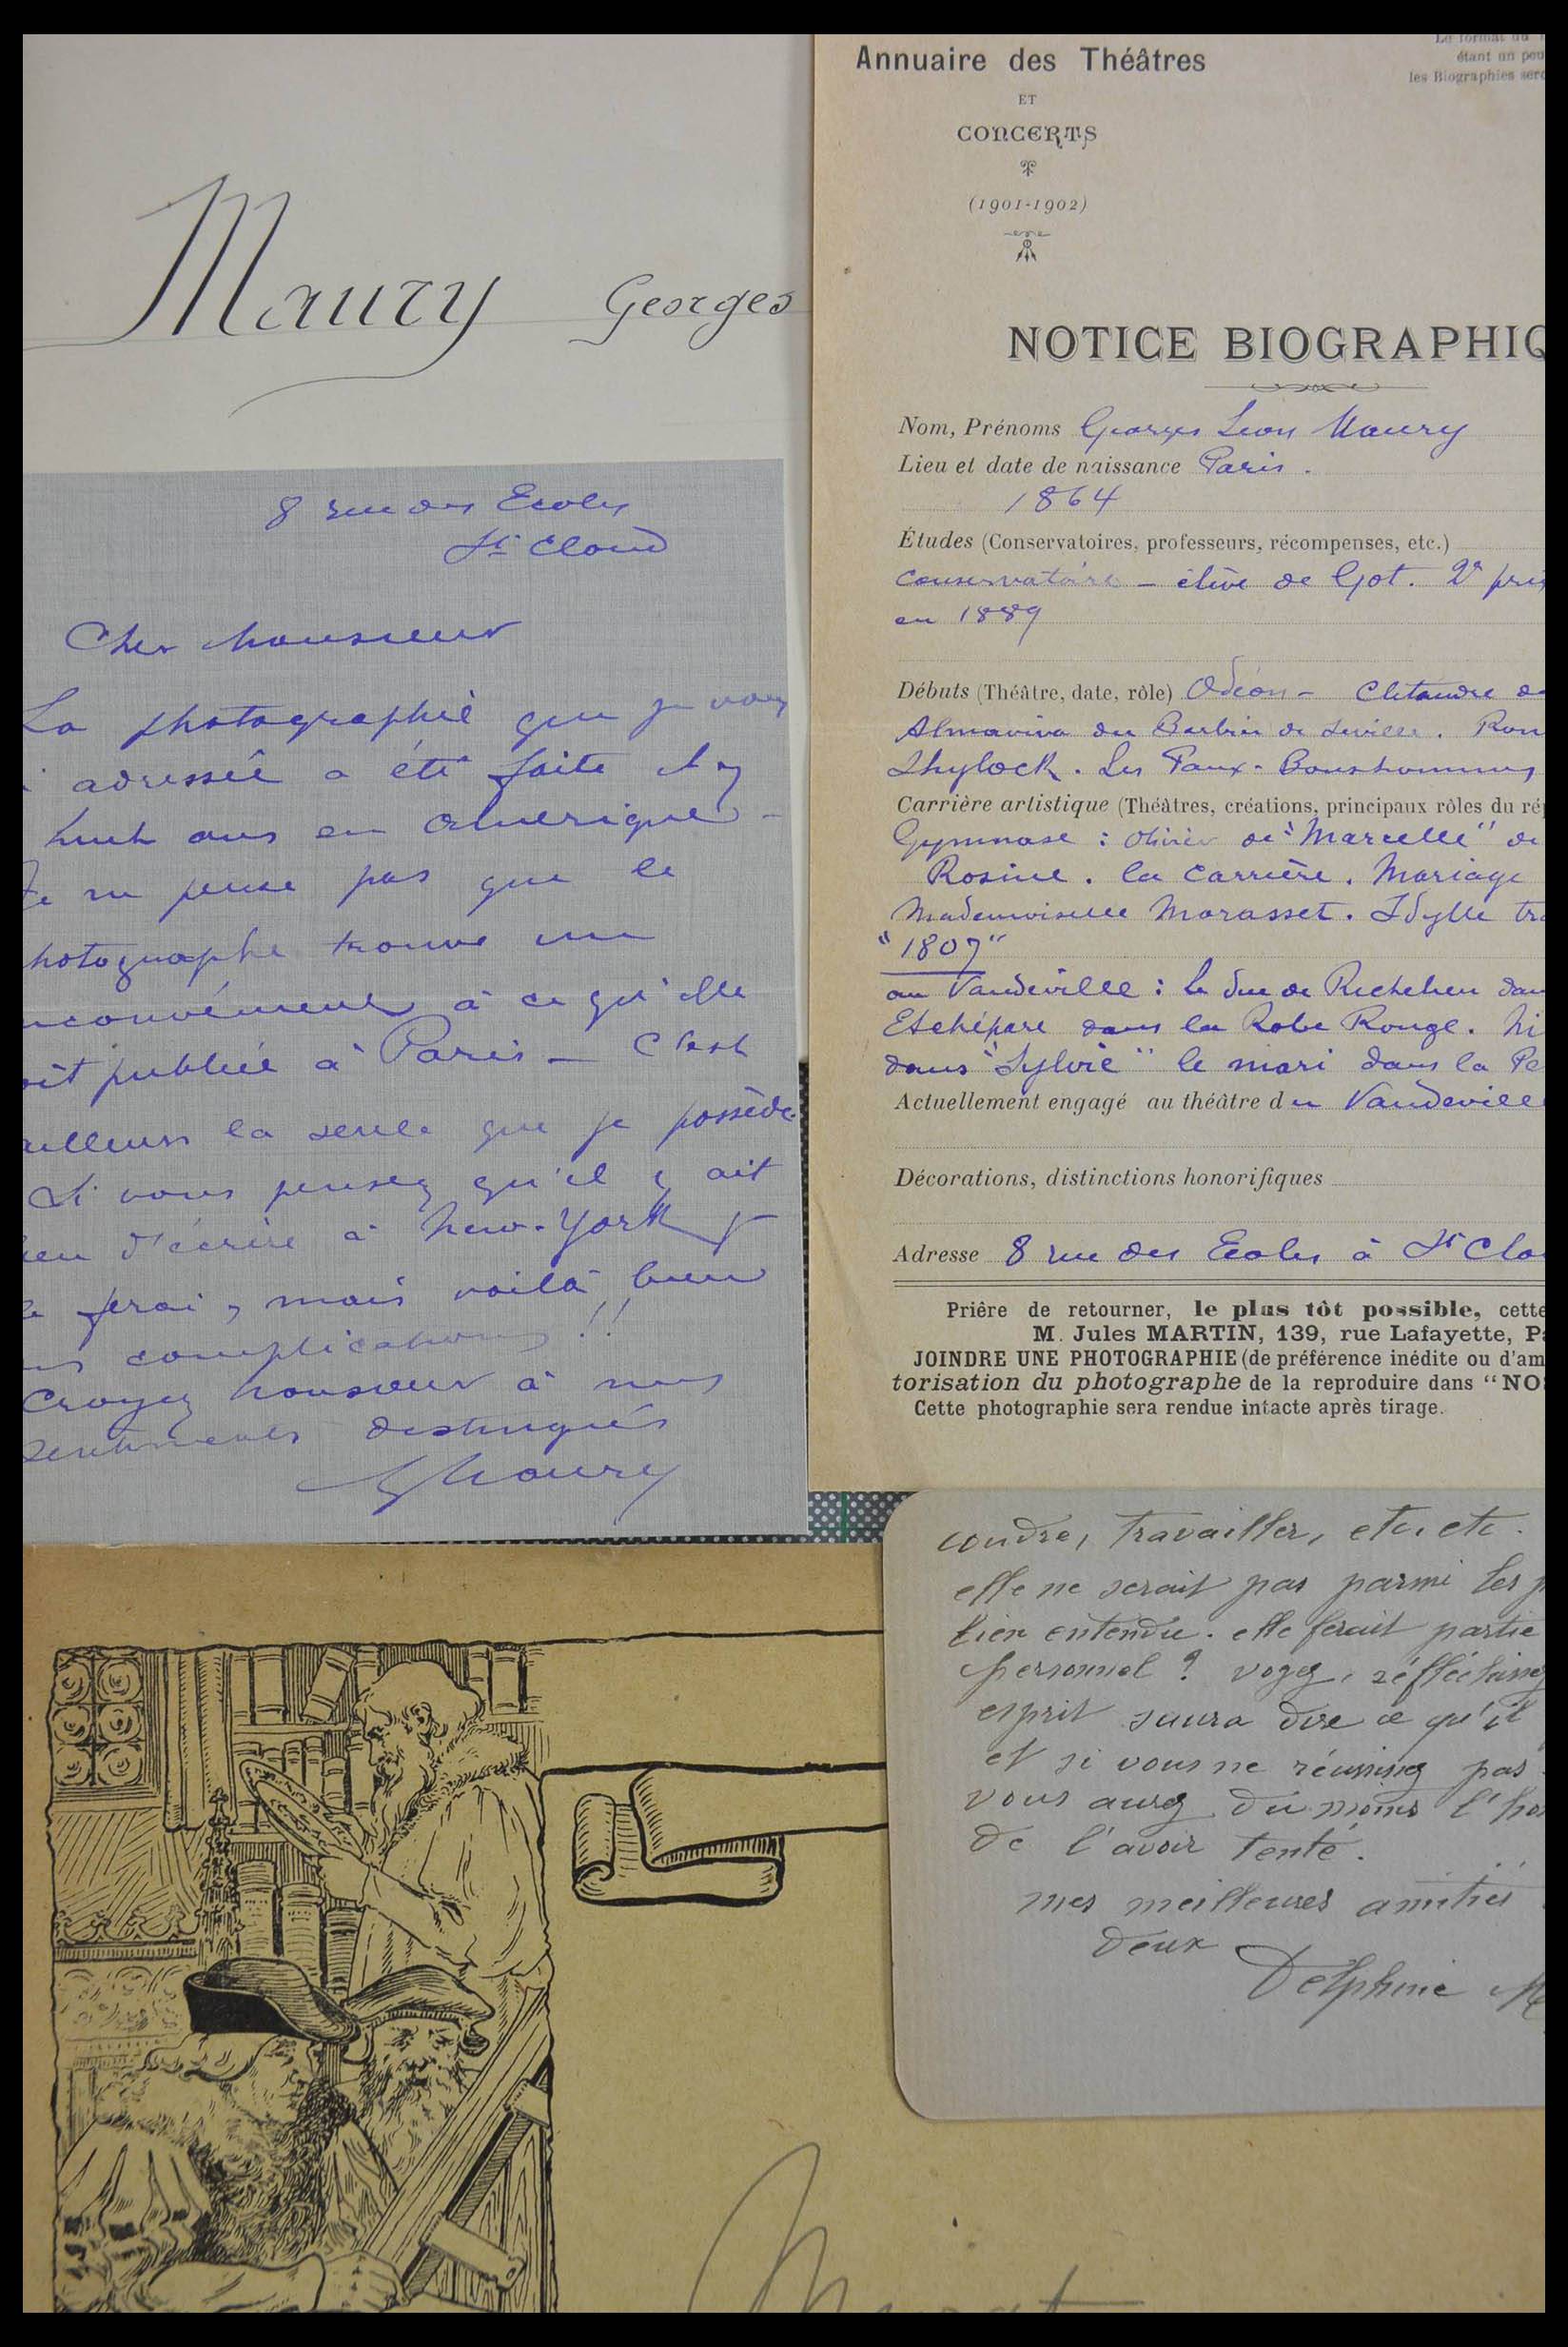 Maury Georges
8 rue des Ecoles
St Cloud
Cher Monsieur
La photographie que je vous
ai adressée a été faite il y
huit ans en Amérique -
Je ne pense pas que le
photographe trouve un
inconvénient à ce qu'elle
soit publiée à Paris - C'est
ailleurs la seule que je possède
Si vous pensez qu'il y ait
lieu d'écrire à New-York je
le ferai, mais voilà bien
complications !!
Croyez Monsieur à mes
sentiments distingués
GMaury
Le format du
étant un peu
les Biographies sero
Annuaire des Théâtres
ET
CONCERTS
(1901-1902)
NOTICE BIOGRAPHIQ
Nom, Prénoms Georges Léon Maury
Lieu et date de naissance Paris.
1864
Études (Conservatoires, professeurs, récompenses, etc.)
Conservatoire - élève de Got. 2e prix
en 1889
Débuts (Théâtre, date, rôle) Odéon - Clitandre de
Almaviva du Barbier de Séville. Rom
Shylock. Les Faux-Bonshommes
Carrière artistique (Théâtres, créations, principaux rôles du rép
Gymnase : Olivier de "Marcelle" de
Rosine. la Carrière. Mariage
Mademoiselle Morasset. Idylle tra
"1807"
au Vaudeville : le duc de Richelieu dan
Etchépare dans la Robe Rouge.
dans "Sylvie" le mari dans la Pe
Actuellement engagé au théâtre du Vaudeville
Décorations, distinctions honorifiques
Adresse 8 rue des Ecoles à St Clo
Prière de retourner, le plus tôt possible, cette
M. Jules MARTIN, 139, rue Lafayette, Pa
JOINDRE UNE PHOTOGRAPHIE (de préférence inédite ou d'am
torisation du photographe de la reproduire dans "NOS
Cette photographie sera rendue intacte après tirage.
coudre, travailler, etc. etc.
elle ne serait pas parmi les p
bien entendu. elle ferait partie
personnel ? voyez, réfléchissez
esprit saura dire ce qu'il
et si vous ne réussissez pas
vous aurez du moins l'hon
de l'avoir tenté.
mes meilleures amitiés
deux
Delphine M
Murat